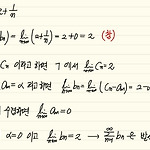 2+\frac{1}{n}
b_n) = \lim_{n→∞} (2+\frac{1}{n}) = 2+0 = 2 (참)
C_n 이라고 하면 ㄱ에서 \lim_{n→∞} C_n = 2
a_n = α 라고 하면 \lim_{n→∞} b_n = \lim_{n→∞} (C_n - a_n) = 2-
수렴하면 \lim_{n→∞} a_n = 0
α=0 이고 \lim_{n→∞} b_n = 2 → \sum_{n=1}^{∞} b_n 은